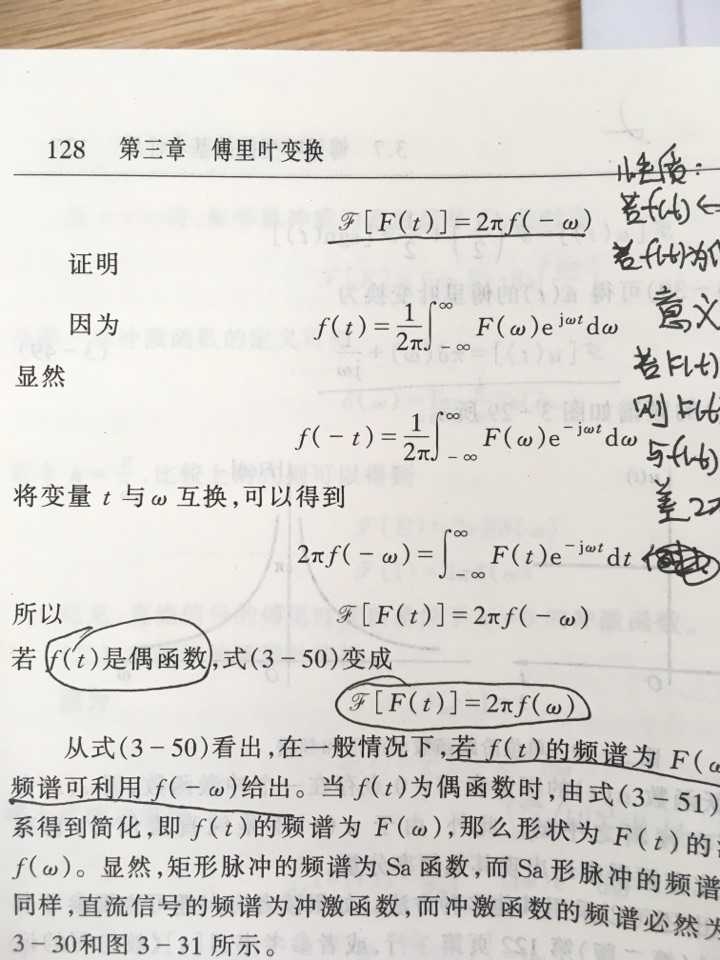 128 第三章 傅里叶变换
ℱ[F(t)]=2πf(-ω)
证明
因为 f(t)=\frac{1}{2π}∫_{-∞}^{∞}F(ω)e^{jωt}dω
显然
f(-t)=\frac{1}{2π}∫_{-∞}^{∞}F(ω)e^{-jωt}dω
将变量 t 与 ω 互换,可以得到
2πf(-ω)=∫_{-∞}^{∞}F(t)e^{-jωt}dt
所以 ℱ[F(t)]=2πf(-ω)
若 f(t)是偶函数,式(3-50)变成
ℱ[F(t)]=2πf(ω)
从式(3-50)看出,在一般情况下,若 f(t)的频谱为 F(ω
频谱可利用 f(-ω)给出。当 f(t)为偶函数时,由式(3-51)
系得到简化,即 f(t)的频谱为 F(ω),那么形状为 F(t)的
f(ω)。显然,矩形脉冲的频谱为 Sa 函数,而 Sa 形脉冲的频谱
同样,直流信号的频谱为冲激函数,而冲激函数的频谱必然为
3-30和图 3-31 所示。
性质:
若f(t)
若f(t)为
意义
若F(t)
则F(t)
与f(t)
差2π